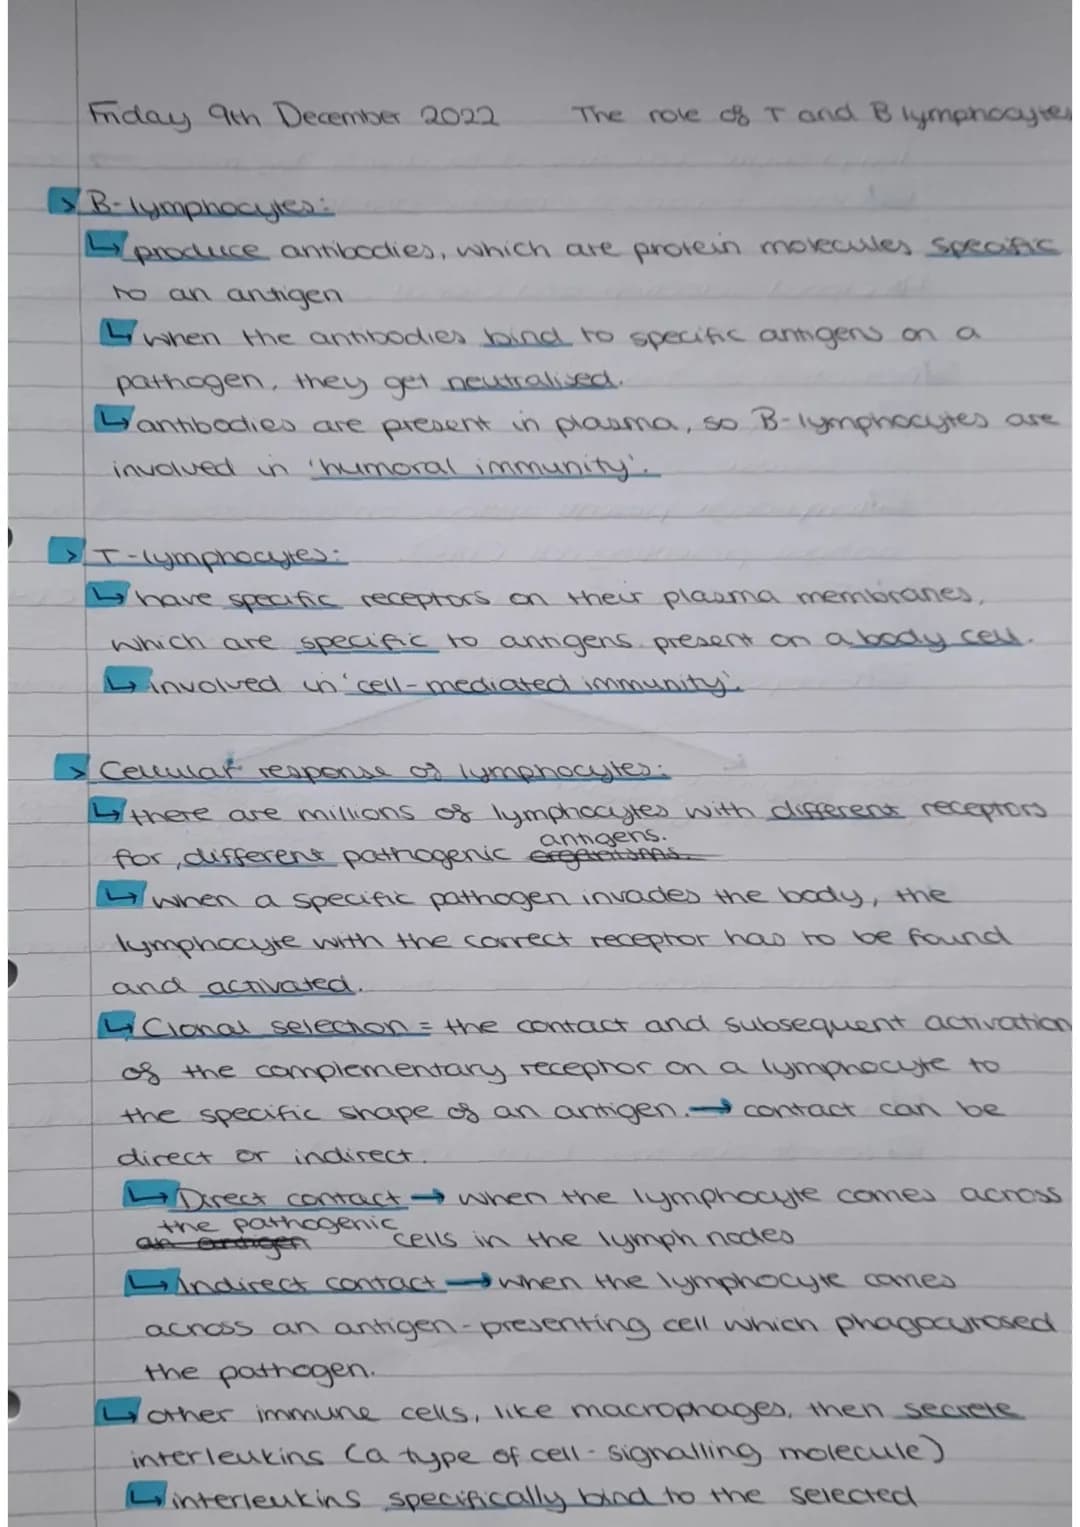 Friday 9th December 2022 The role of T and B lymphocytes
> B-lymphocytes:
↳ produce antibodies, which are protein molecules specific
to an antigen
↳ when the antibodies bind to specific antigens on a
pathogen, they get neutralised.
↳ antibodies are present in plasma, so B-lymphocytes are
involved in 'humoral immunity'.
> T-lymphocytes:
↳ have specific receptors on their plasma membranes,
which are specific to antigens present on a body cell.
↳ involved in 'cell-mediated immunity'.
> Cellular response of lymphocytes:
↳ there are millions of lymphocytes with different receptors
antigens.
for different pathogenic organisms.
↳ when a specific pathogen invades the body, the
lymphocyte with the correct receptor has to be found
and activated.
↳ Clonal selection = the contact and subsequent activation
of the complementary receptor on a lymphocyte to
the specific shape of an antigen. → contact can be
direct or indirect.
↳ Direct contact → when the lymphocyte comes across
the pathogenic
an antigen cells in the lymph nodes
↳ Indirect contact → when the lymphocyte comes
across an antigen-presenting cell which phagocytosed
the pathogen.
↳ other immune cells, like macrophages, then secrete
interleukins (a type of cell-signalling molecule)
↳ interleukins specifically bind to the selected